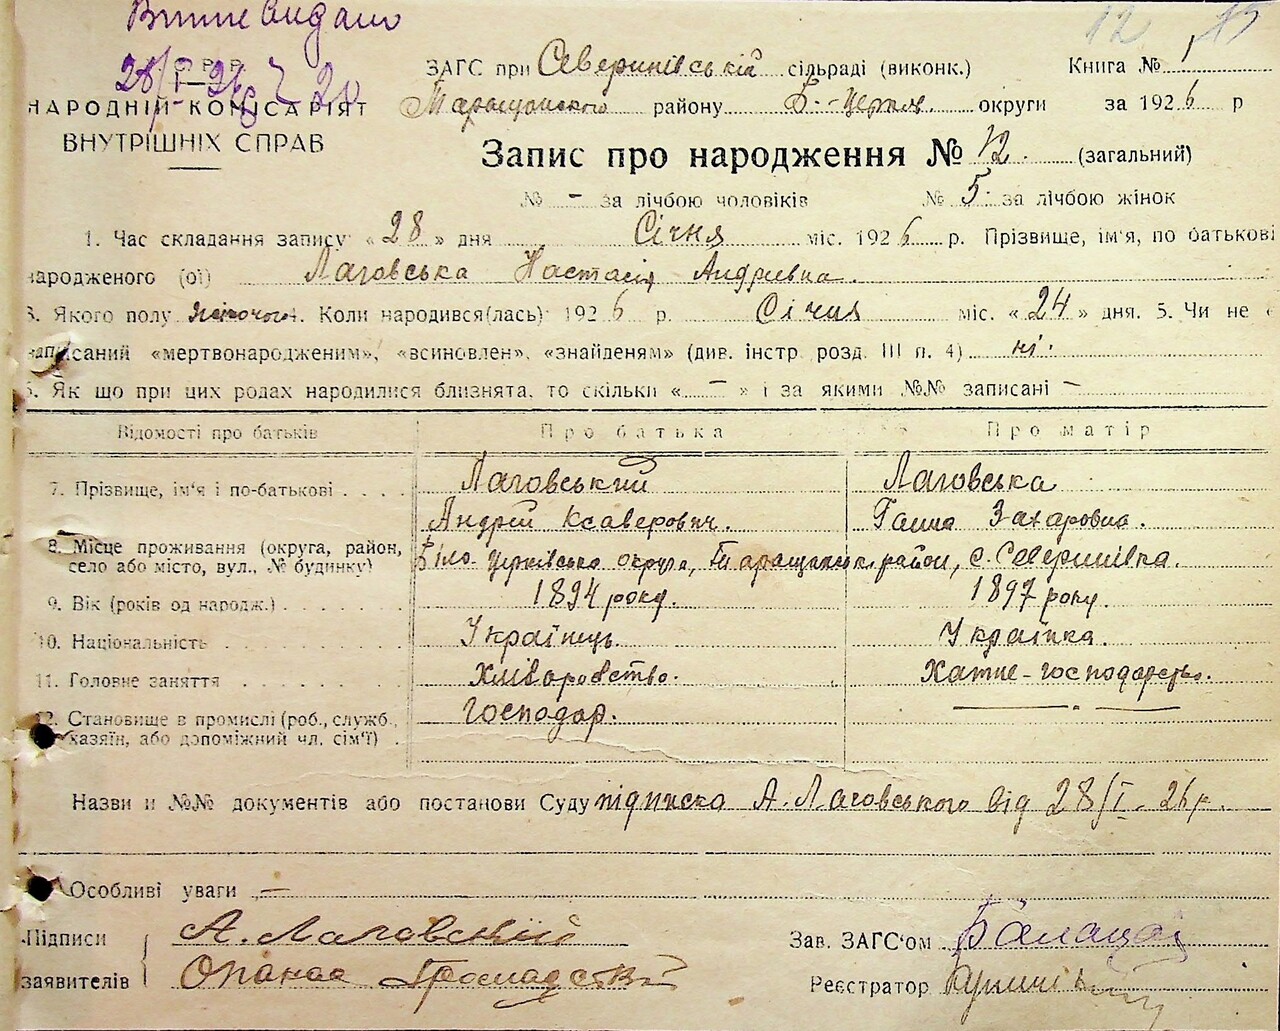 12 15
У.С.Р.Р.
НАРОДНІЙ КОМІСАРІЯТ
ВНУТРІШНІХ СПРАВ
ЗАГС при Северинівській сільраді (виконк.) Книга № 1
Таращанского району Б.-Церків. округи за 1926 р
Запис про народження № 12. (загальний)
№ - за лічбою чоловіків № 5. за лічбою жінок
1. Час складання запису: «28» дня Січня міс. 1926 р. Прізвище, ім'я, по батькові
народженого (ої) Лаговська Настасія Андриевна.
3. Якого полу жіночого. Коли народився(лась) 1926 р. Січня міс. «24» дня. 5. Чи не
записаний «мертвонародженим», «всиновлен», «знайденям» (див. інстр. розд. III п. 4) ні.
6. Як що при цих родах народилися близнята, то скільки «-» і за якими №№ записані -
Відомості про батьків Про батька Про матір
7. Прізвище, ім'я і по-батькові Лаговський Лаговська
Андрій Ксаверович. Ганна Захаровна.
8. Місце проживання (округа, район, село або місто, вул., № будинку) Біло-Церківська округа, Таращанск. район, с. Северинівка.
9. Вік (років од народж.) 1894 року. 1897 року.
10. Національність Українець. Українка.
11. Головне заняття Хліборобство. Хатне-господарство.
12. Становище в промислі (роб., служб., господар.
хазяїн, або допоміжний чл. сім'ї)
Назви и №№ документів або постанови Суду підписка А. Лаговського від 28/I-26 р.
Особливі уваги -
Підписи А. Лаговский Зав. ЗАГС'ом
заявителів Опанас Громадский Реєстратор